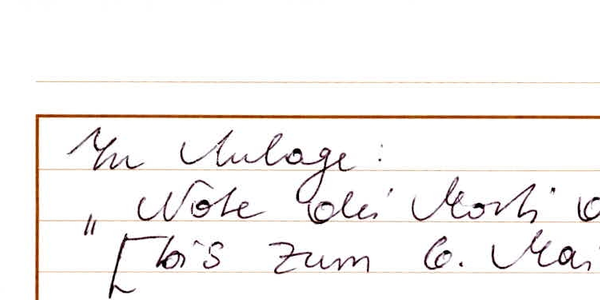 In Anlage:
" Note dei Morti
[bis zum 6. Mai